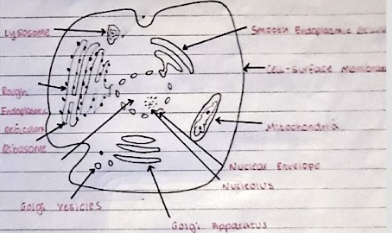 Lysosome
Smooth Endoplasmic
Cell-Surface Membrane
Rough
Endoplasmic
Reticulum
Ribosome
Mitochondria
Nuclear Envelope
Nucleolus
Golgi Vesicles
Golgi Apparatus